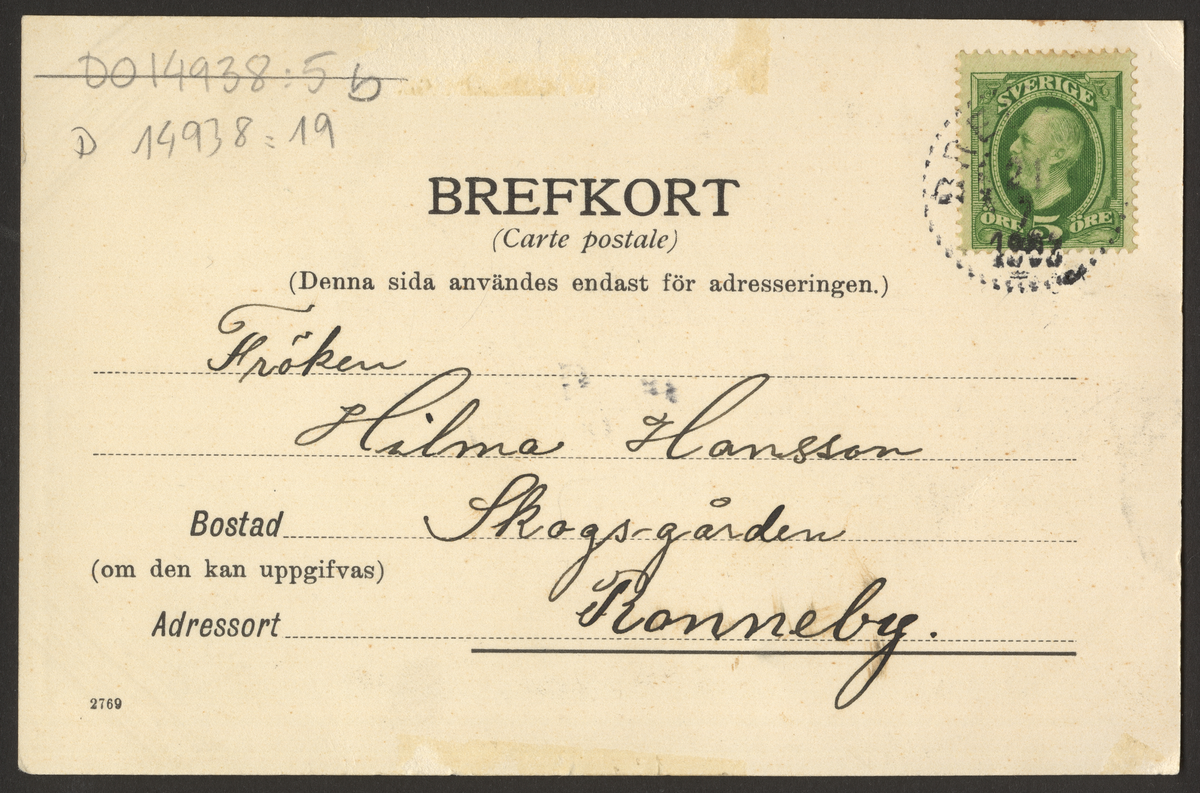 DO14938:5 b
D 14938:19
BREFKORT
(Carte postale)
(Denna sida användes endast för adresseringen.)
SVERIGE
ÖRE 5 ÖRE
21
7
Fröken
Hilma Hansson
Bostad Skogs-gården
(om den kan uppgifvas)
Adressort Ronneby.
2769